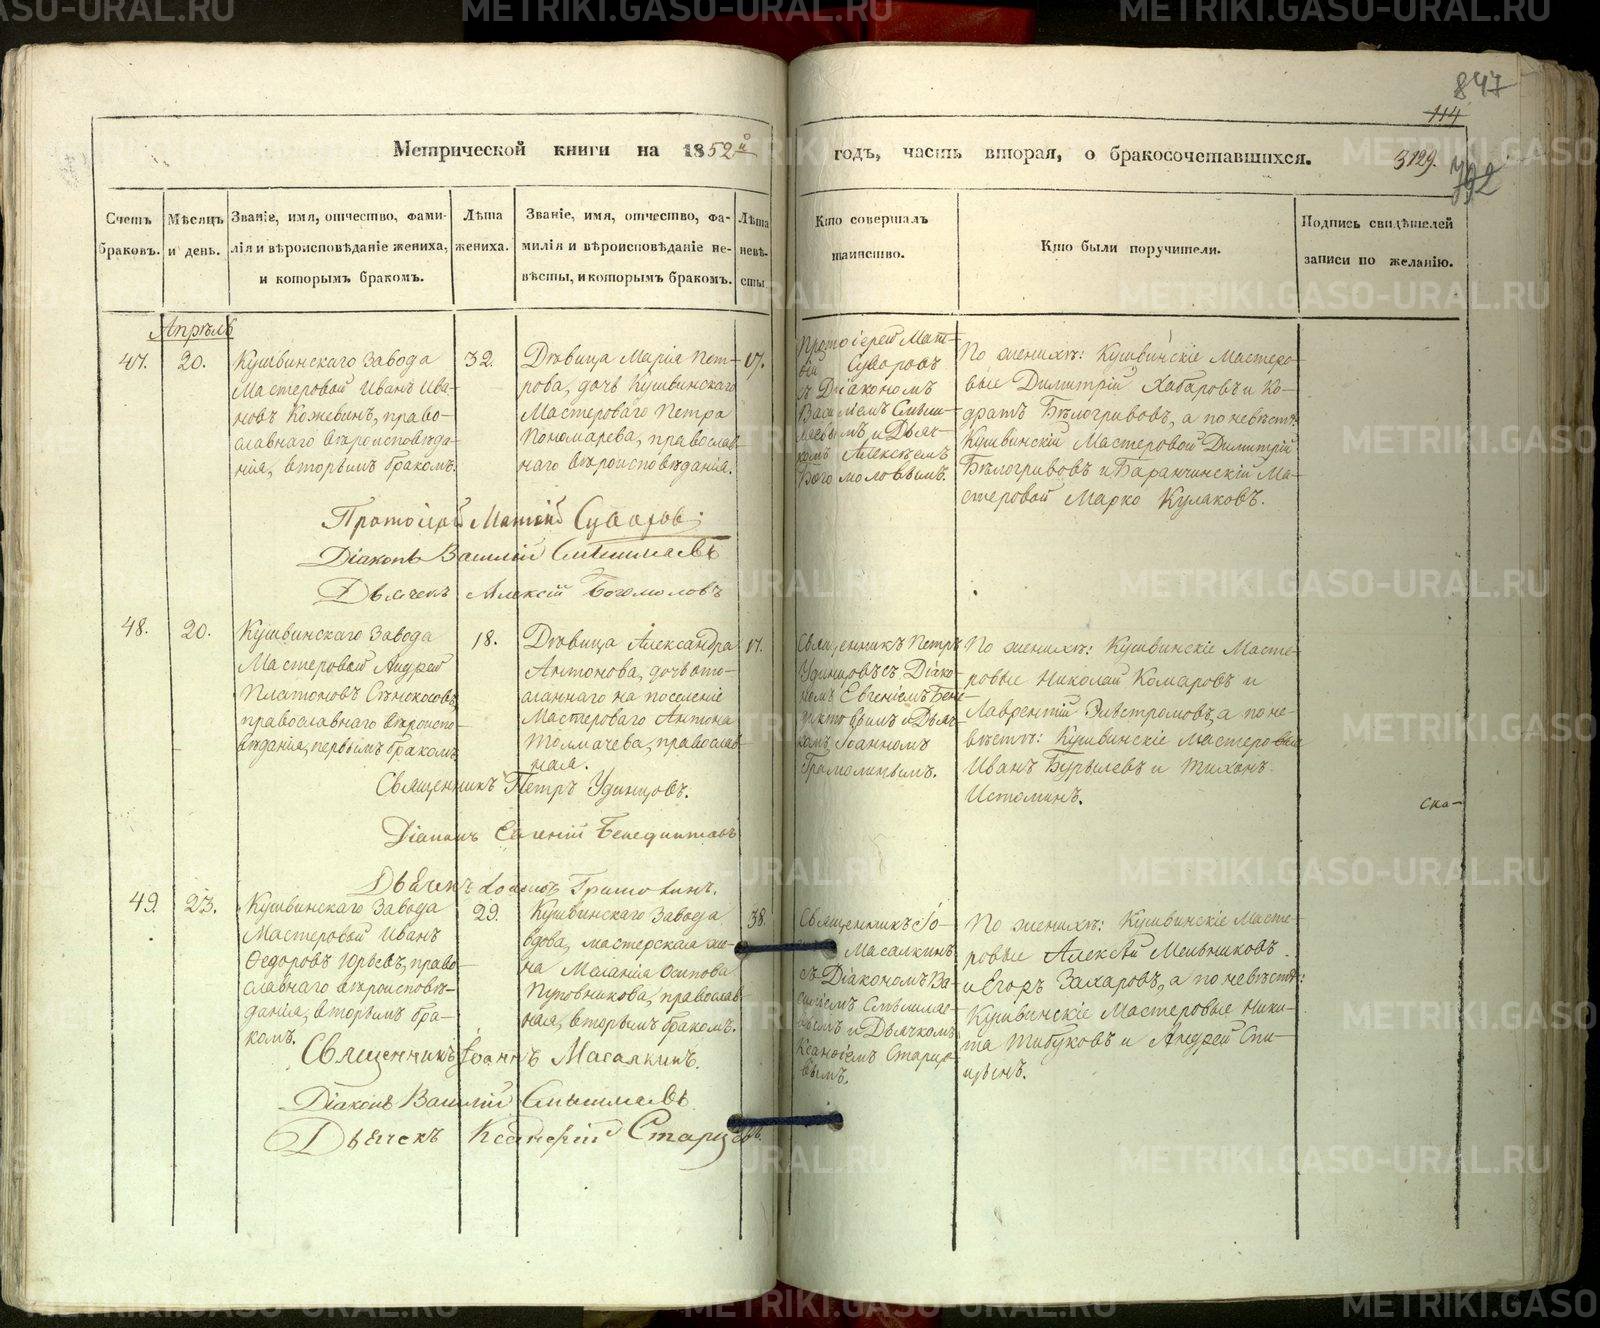 847
114
Метрической книги на 1852й
годъ, часть вторая, о бракосочетавшихся.
3129.
792
Счетъ браковъ.
Мѣсяцъ и день.
Званіе, имя, отчество, фами-
лія и вѣроисповѣданіе жениха,
и которымъ бракомъ.
Лѣта
жениха.
Званіе, имя, отчество, фа-
милія и вѣроисповѣданіе не-
вѣсты, и которымъ бракомъ.
Лѣта
невѣ-
сты.
Кто совершалъ
таинство.
Кто были поручители.
Подпись свидѣтелей
записи по желанію.
Апрѣль
47.
20.
Кушвинскаго завода
Мастеровой Иванъ Ива-
новъ Кожевинъ, право-
славнаго вѣроисповѣда-
нія, вторымъ бракомъ.
32.
Дѣвица Марія Пет-
рова, дочь Кушвинскаго
Мастероваго Петра
Пономарева, православ-
наго вѣроисповѣданія.
17.
Протоіерей Мат-
ѳій Суворовъ
съ Діакономъ
Василіемъ Смыш-
ляевымъ и Дьяч-
комъ Алексѣемъ
Богомоловымъ.
По женихѣ: Кушвинскіе Мастеро-
вые Димитрій Хабаровъ и Ко-
дратъ Бѣлогривовъ, а по невѣстѣ:
Кушвинскій Мастеровой Димитрій
Бѣлогривовъ и Баранчинскій Ма-
стеровой Марко Кулаковъ.
Протоіерей Матѳій Суворовъ
Діаконъ Василій Смышляевъ
Дьячекъ Алексій Богомоловъ
48.
20.
Кушвинскаго завода
Мастеровой Андрей
Платоновъ Сѣнокосовъ,
православнаго вѣроиспо-
вѣданія, первымъ бракомъ.
18.
Дѣвица Александра
Антонова, дочь ото-
сланнаго на поселеніе
Мастероваго Антона
Толмачева, православ-
ная.
17.
Священникъ Петръ
Удинцовъ съ Діако-
номъ Евгеніемъ Бене-
диктовымъ и Дьяч-
комъ Іоанномъ
Грамолинымъ.
По женихѣ: Кушвинскіе Масте-
ровые Николай Комаровъ и
Лаврентій Эльстромовъ, а по не-
вѣстѣ: Кушвинскіе мастеровые
Иванъ Бурылевъ и Тихонъ
Истоминъ.
Ска-
Священникъ Петръ Удинцовъ.
Діаконъ Евгеній Бенедиктовъ
Дьячекъ Іоаннъ Грамолинъ.
49.
23.
Кушвинскаго завода
Мастеровой Иванъ
Ѳедоровъ Юрьевъ, право-
славнаго вѣроисповѣ-
данія, вторымъ бра-
комъ.
29.
Кушвинскаго завода
вдова, мастерская же-
на Меланія Осипова
Пуговникова, православ-
ная, вторымъ бракомъ.
38.
Священникъ Іо-
аннъ Масалкинъ
съ Діакономъ Ва-
силіемъ Смышляе-
вымъ и Дьячкомъ
Ксанѳіемъ Старцо-
вымъ.
По женихѣ: Кушвинскіе Масте-
ровые Алексѣй Мельниковъ
и Егоръ Захаровъ, а по невѣстѣ:
Кушвинскіе Мастеровые Ники-
та Тибуковъ и Андрей Спи-
цынъ.
Священникъ Іоаннъ Масалкинъ.
Діаконъ Василій Смышляевъ
Дьячекъ Ксанѳій Старцовъ.
METRIKI.GASO-URAL.RU